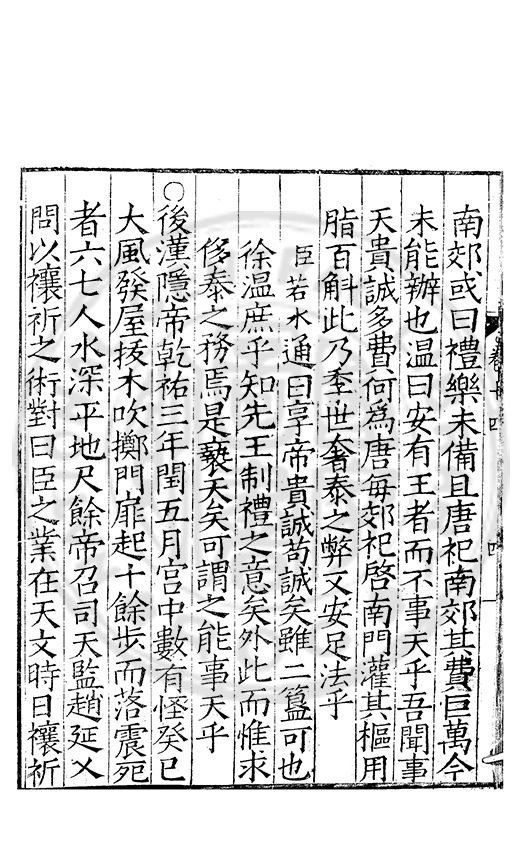 南郊或曰禮樂未備且唐祀南郊其費巨萬今
未能辦也温曰安有王者而不事天乎吾聞事
天貴誠多費何爲唐每郊祀啓南門灌其樞用
脂百斛此乃季世奢泰之弊又安足法乎
臣若水通曰享帝貴誠苟誠矣雖二簋可也
徐温庶乎知先王制禮之意矣外此而惟求
侈泰之務焉是褻天矣可謂之能事天乎
○後漢隱帝乾祐三年閏五月宫中數有怪癸巳
大風發屋拔木吹擲門扉起十餘步而落震死
者六七人水深平地尺餘帝召司天監趙延乂
問以禳祈之術對曰臣之業在天文時日禳祈
卷十四
四